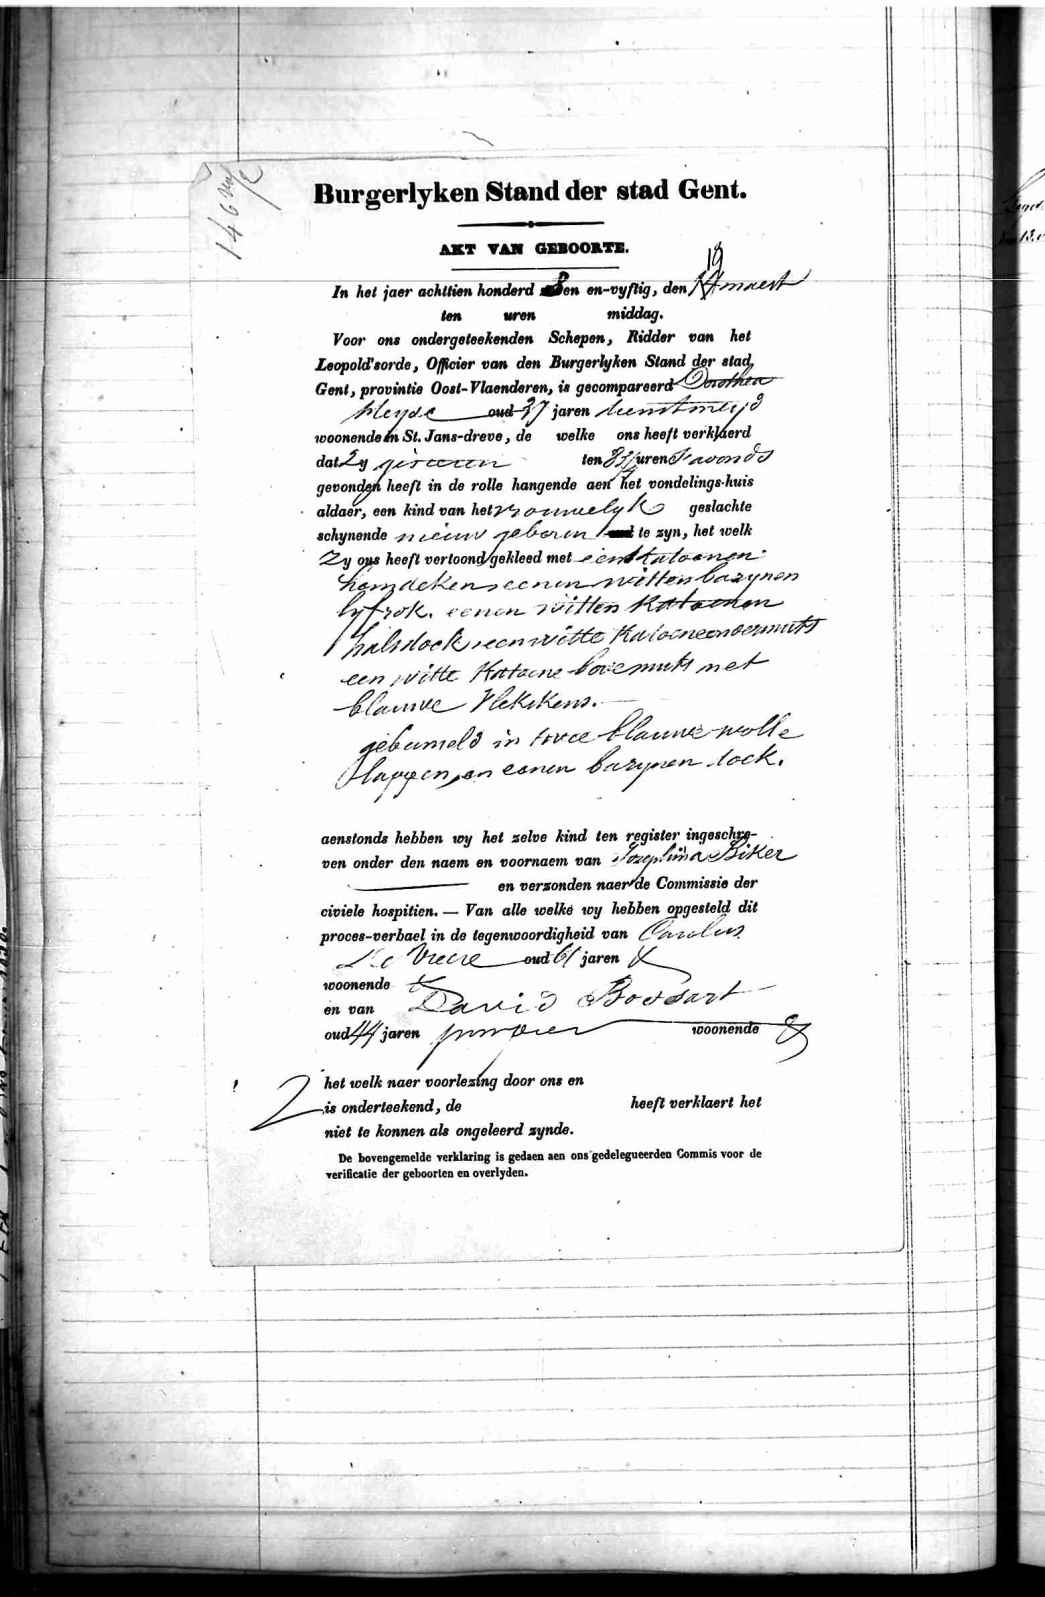 146
Burgerlyken Stand der stad Gent.
AKT VAN GEBOORTE.
19
In het jaer achttien honderd 8en en-vyftig, den maert
ten uren middag.
Voor ons ondergeteekenden Schepen, Ridder van het
Leopold'sorde, Officier van den Burgerlyken Stand der stad
Gent, provintie Oost-Vlaenderen, is gecompareerd Dorothea
Heyse oud 37 jaren dienstmeyd
woonende in St. Jans-dreve, de welke ons heeft verklaerd
dat Zy gisteren ten 8 3/4 uren s'avonds
gevonden heeft in de rolle hangende aen het vondelings-huis
aldaer, een kind van het vrouwelyk geslachte
schynende nieuw geboren te zyn, het welk
Zy ons heeft vertoond gekleed met een katoenen
hemdeken eenen witten bazynen
lyfrok. eenen witten katoenen
halsdoek een witte katoene ondermuts
een witte katoene bovemuts met
blauwe vlekskens.
gebumeld in twee blauwe wolle
lappen, en eenen bazynen doek.
aenstonds hebben wy het zelve kind ten register ingeschre-
ven onder den naem en voornaem van Josephina Biker
en verzonden naer de Commissie der
civiele hospitien. — Van alle welke wy hebben opgesteld dit
proces-verbael in de tegenwoordigheid van Carolus
De Vreese oud 61 jaren
woonende
en van David Bossart
oud 44 jaren woonende
het welk naer voorlezing door ons en
is onderteekend, de heeft verklaert het
niet te konnen als ongeleerd zynde.
De bovengemelde verklaring is gedaen aen ons gedelegueerden Commis voor de
verificatie der geboorten en overlyden.